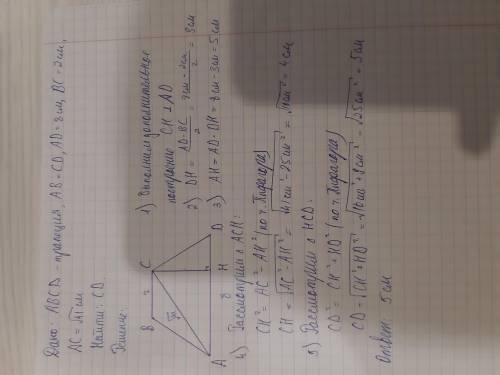 Дано: ABCD - трапеция, AB = CD, AD = 8 см, BC = 2 см,
AC = √41 см
Найти: CD.
Решение:
B 2 C
√41
A 8 H D
1) Выполним дополнительное
построение CH ⊥ AD
2) DH = AD - BC / 2 = 8 см - 2 см / 2 = 3 см
3) AH = AD - DH = 8 см - 3 см = 5 см
4) Рассмотрим △ ACH:
CH² = AC² - AH² (по т. Пифагора)
CH = √AC² - AH² = √41 см² - 25 см² = √16 см² = 4 см
5) Рассмотрим △ HCD:
CD² = CH² + HD² (по т. Пифагора)
CD = √CH² + HD² = √16 см² + 9 см² = √25 см² = 5 см
Ответ: 5 см